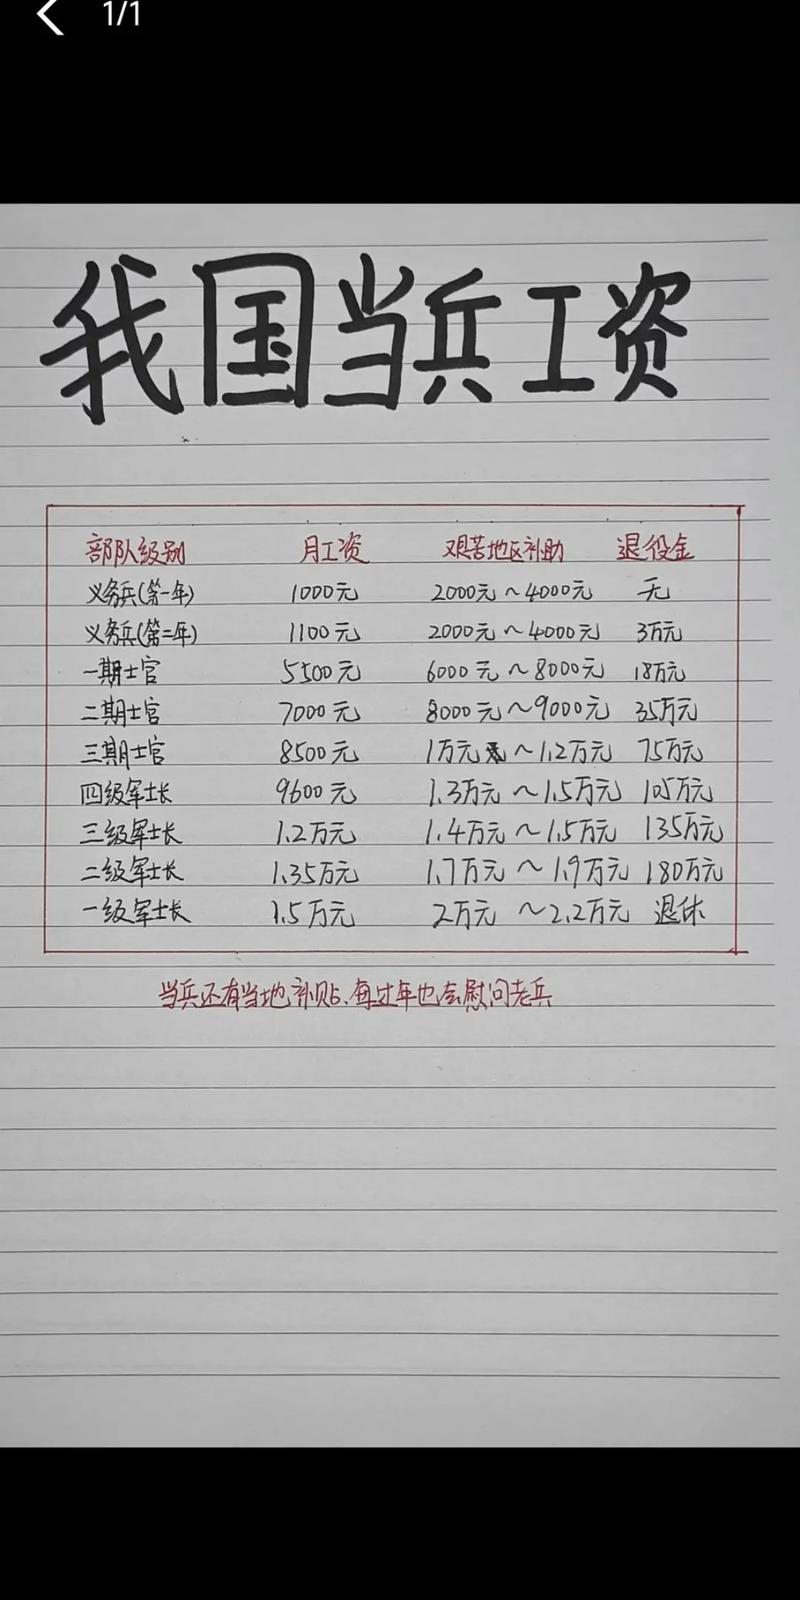 1/1
我国当兵工资
部队级别 月工资 艰苦地区补助 退役金
义务兵(第一年) 1000元 2000元~4000元 无
义务兵(第二年) 1100元 2000元~4000元 3万元
一期士官 5500元 6000元~8000元 18万元
二期士官 7000元 8000元~9000元 35万元
三期士官 8500元 1万元~1.2万元 75万元
四级军士长 9600元 1.3万元~1.5万元 105万元
三级军士长 1.2万元 1.4万元~1.5万元 135万元
二级军士长 1.35万元 1.7万元~1.9万元 180万元
一级军士长 1.5万元 2万元~2.2万元 退休
当兵还有当地补贴、每过年也会慰问老兵